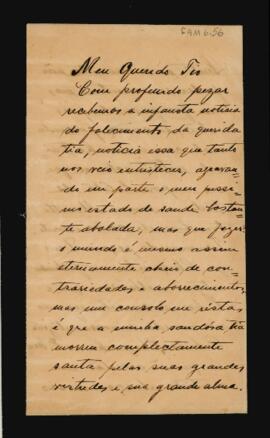 FAM 6.56
Meu Querido Tio
Com profundo pezar
recebemos a infausta noticia
do falecimento da querida
tia, noticia essa que tanto
nos veio entristecer, agravan=
do em parte o meu pessi=
mo estado de saude bastan=
te abalada, mas que fazer
o mundo é mesmo assim
cheio de con=
trariedades e aborrecimentos,
mas um consolo em
é que a minha saudosa tia
morreu completamente
santa pelas suas grandes
virtudes e sua grande alma.